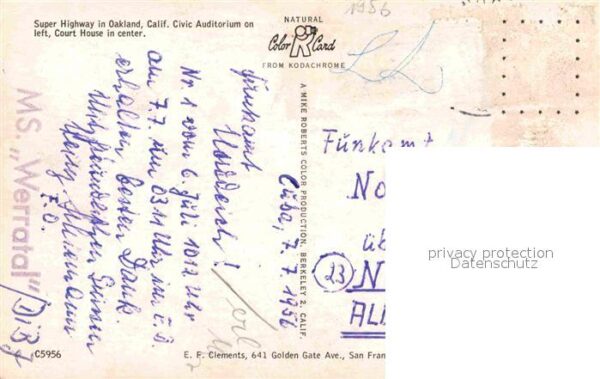 1956
Super Highway in Oakland, Calif. Civic Auditorium on
left, Court House in center.
NATURAL
Color Card
FROM KODACHROME
A MIKE ROBERTS COLOR PRODUCTION, BERKELEY 2, CALIF.
Cuba, 7.7.1956
Funkamt
Norddeich!
Nr. 1 vom 6. Juli 1012 Uhr
am 7.7. um 0311 Uhr in F.O.
erhalten, besten Dank.
Mit freundlichen Grüssen
Heinz
F.O.
MS. „Werratal"/DIBJ
Funkamt
No
üb
23
N
ALL
privacy protection
Datenschutz
C5956
E. F. Clements, 641 Golden Gate Ave., San Fran